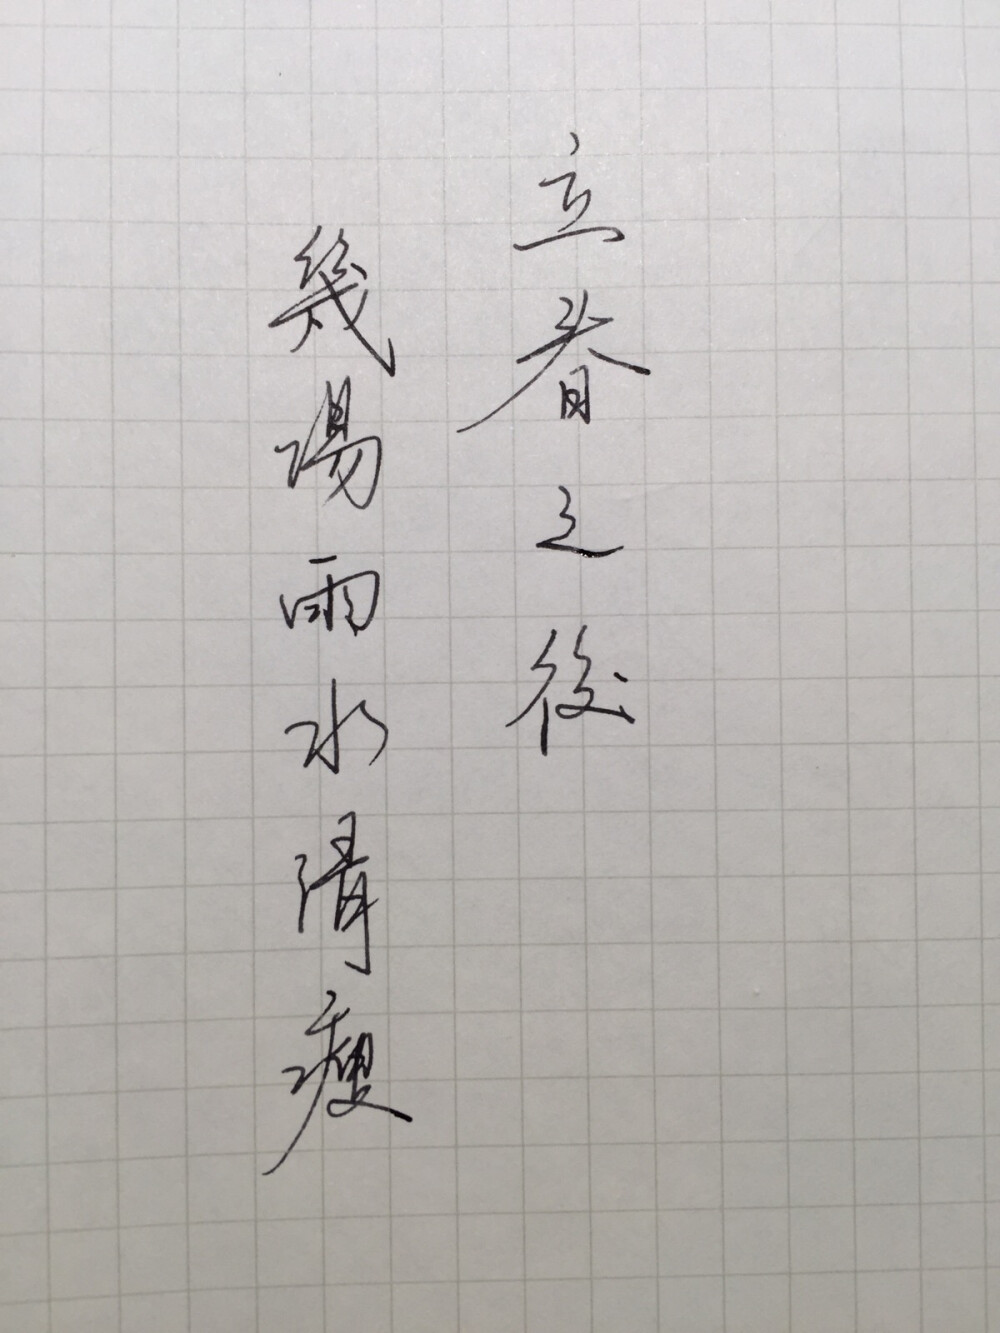 立春之後
幾場雨水清瘦